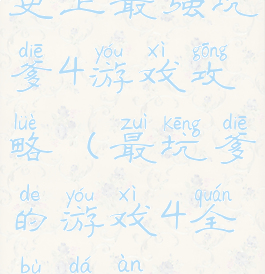 史上最强坑
diē yóu xì gōng
爹4游戏攻
lüè zuì kēng diē
略（最坑爹
de yóu xì quán
的游戏4全
bù dá àn